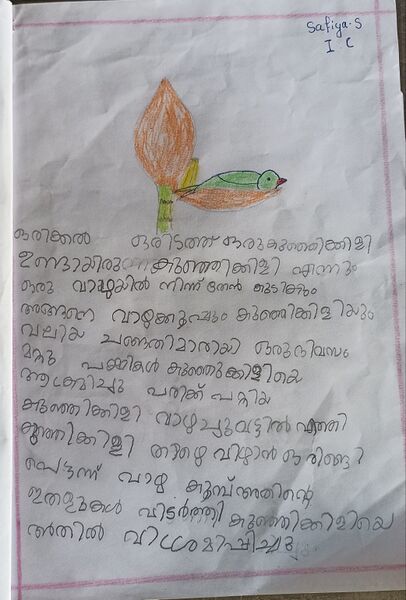 Safiya.S
I C
ഒരിക്കൽ ഒരിടത്ത് ഒരു കുഞ്ഞിക്കിളി
ഉണ്ടായിരുന്നു കുഞ്ഞിക്കിളി എന്നും
ഒരു വാഴയിൽ നിന്ന് തേൻ കുടിക്കും
അങ്ങനെ വാഴക്കൂമ്പും കുഞ്ഞിക്കിളിയും
വലിയ ചങ്ങാതിമാരായി ഒരു ദിവസം
മറ്റു പക്ഷികൾ കുഞ്ഞിക്കിളിയെ
ആക്രമിച്ചു പരിക്ക് പറ്റിയ
കുഞ്ഞിക്കിളി വാഴച്ചുവട്ടിൽ എത്തി
കുഞ്ഞിക്കിളി താഴെ വീഴാൻ ഒരുങ്ങി
പെട്ടന്ന് വാഴ കൂമ്പ് അതിന്റെ
ഇതളുകൾ വിടർത്തി കുഞ്ഞിക്കിളിയെ
അതിൽ വിശ്രമിപ്പിച്ചു